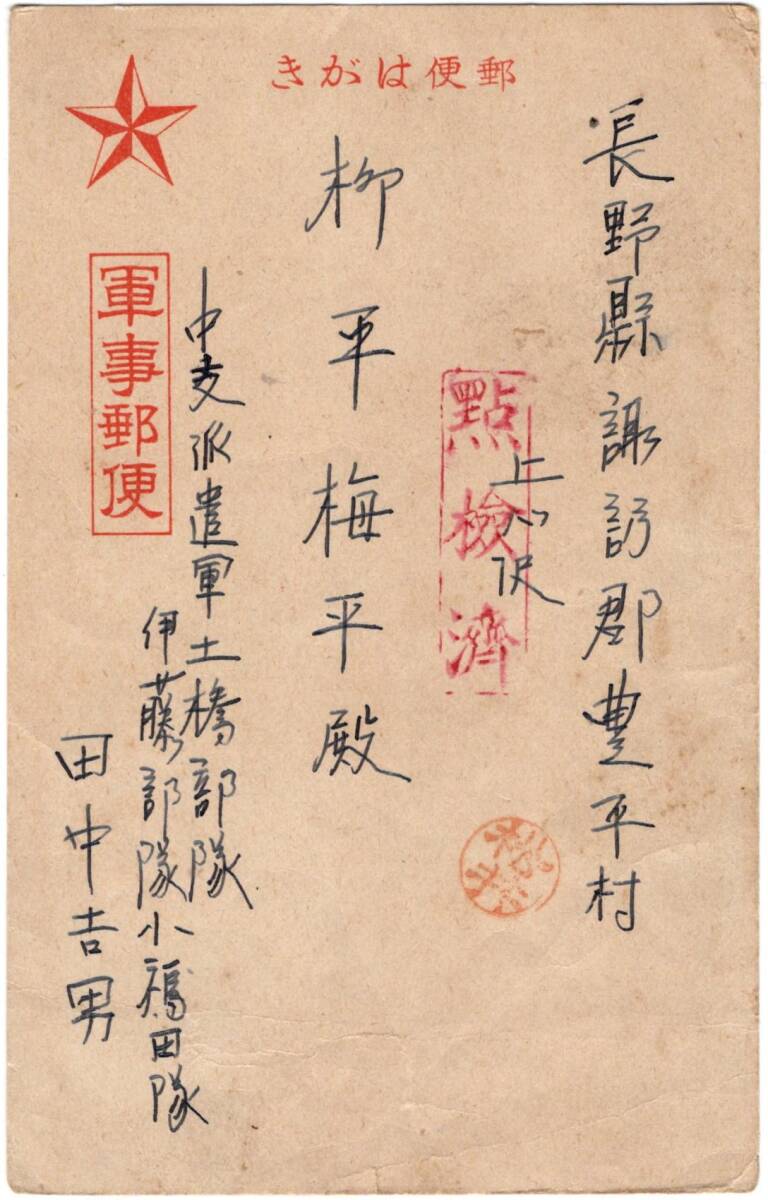 郵便はがき
長野縣諏訪郡豊平村
上

點檢濟
柳平梅平殿
軍事郵便
中支派遣軍土橋部隊
伊藤部隊小福田隊
田中吉男